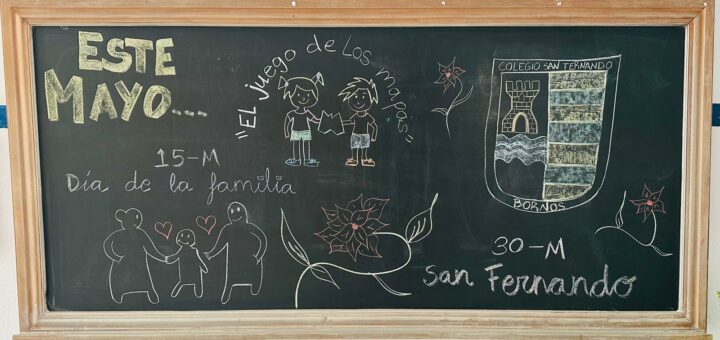 ESTE
MAYO...
"El juego de los mapas"
15-M
Día de la familia
COLEGIO SAN FERNANDO
BORNOS
30-M
San Fernando